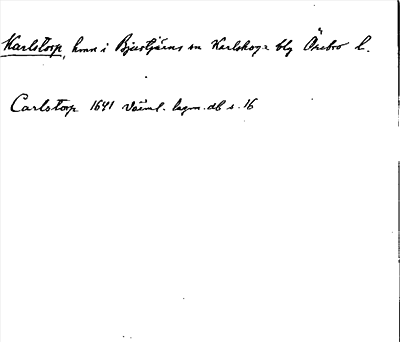 Karlstorp, hmn i Bjurtjärns sn Karlskoga blg Örebro l.
Carlstorp 1641 Värml. lagm. db s. 16